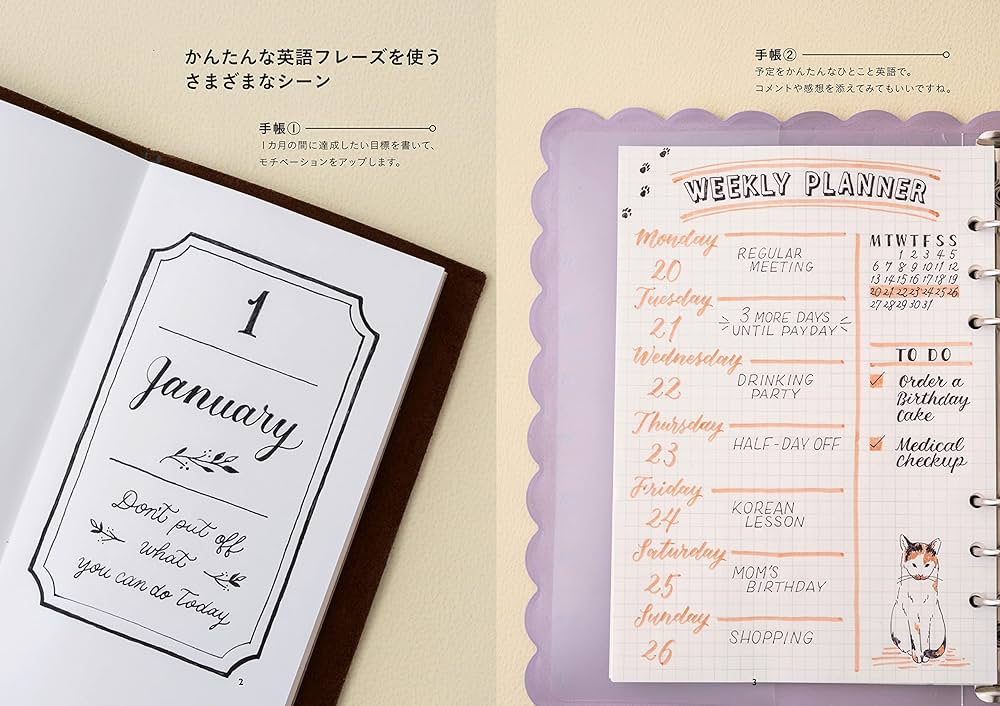 かんたんな英語フレーズを使う
さまざまなシーン
手帳①
1カ月の間に達成したい目標を書いて、
モチベーションをアップします。
1
January
Don't put off
what
you can do Today
2
手帳②
予定をかんたんなひとこと英語で。
コメントや感想を添えてみてもいいですね。
WEEKLY PLANNER
Monday
20
REGULAR
MEETING
Tuesday
21
3 MORE DAYS
UNTIL PAYDAY
Wednesday
22
DRINKING
PARTY
Thursday
23
HALF-DAY OFF
Friday
24
KOREAN
LESSON
Saturday
25
MOM'S
BIRTHDAY
Sunday
26
SHOPPING
M T W T F S S
1 2 3 4 5
6 7 8 9 10 11 12
13 14 15 16 17 18 19
20 21 22 23 24 25 26
27 28 29 30 31
TO DO
Order a
Birthday
Cake
Medical
Checkup
3